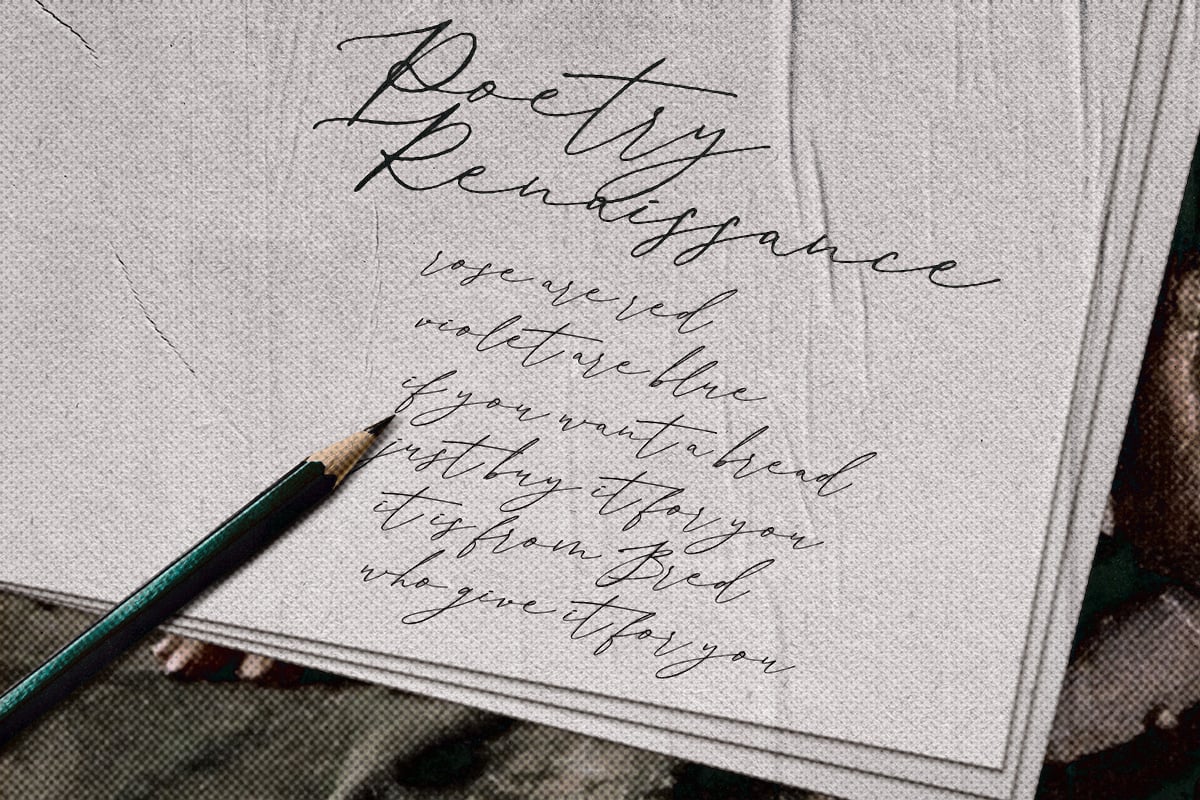 Poetry
Renaissance
rose are red
violet are blue
if you want a bread
just buy it for you
it is from Bred
who give it for you